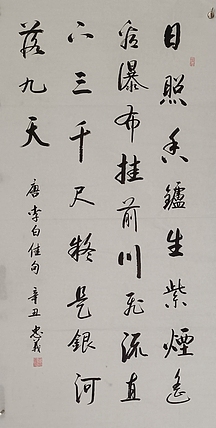 日照香鑪生紫煙遙
看瀑布挂前川飛流直
下三千尺疑是銀河
落九天
唐李白佳句辛丑忠義